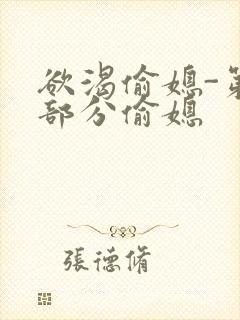 欲渴偷媳-第
部分偷媳
張德脩